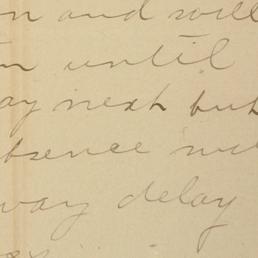 and will
until
ay next but
bsence
way delay